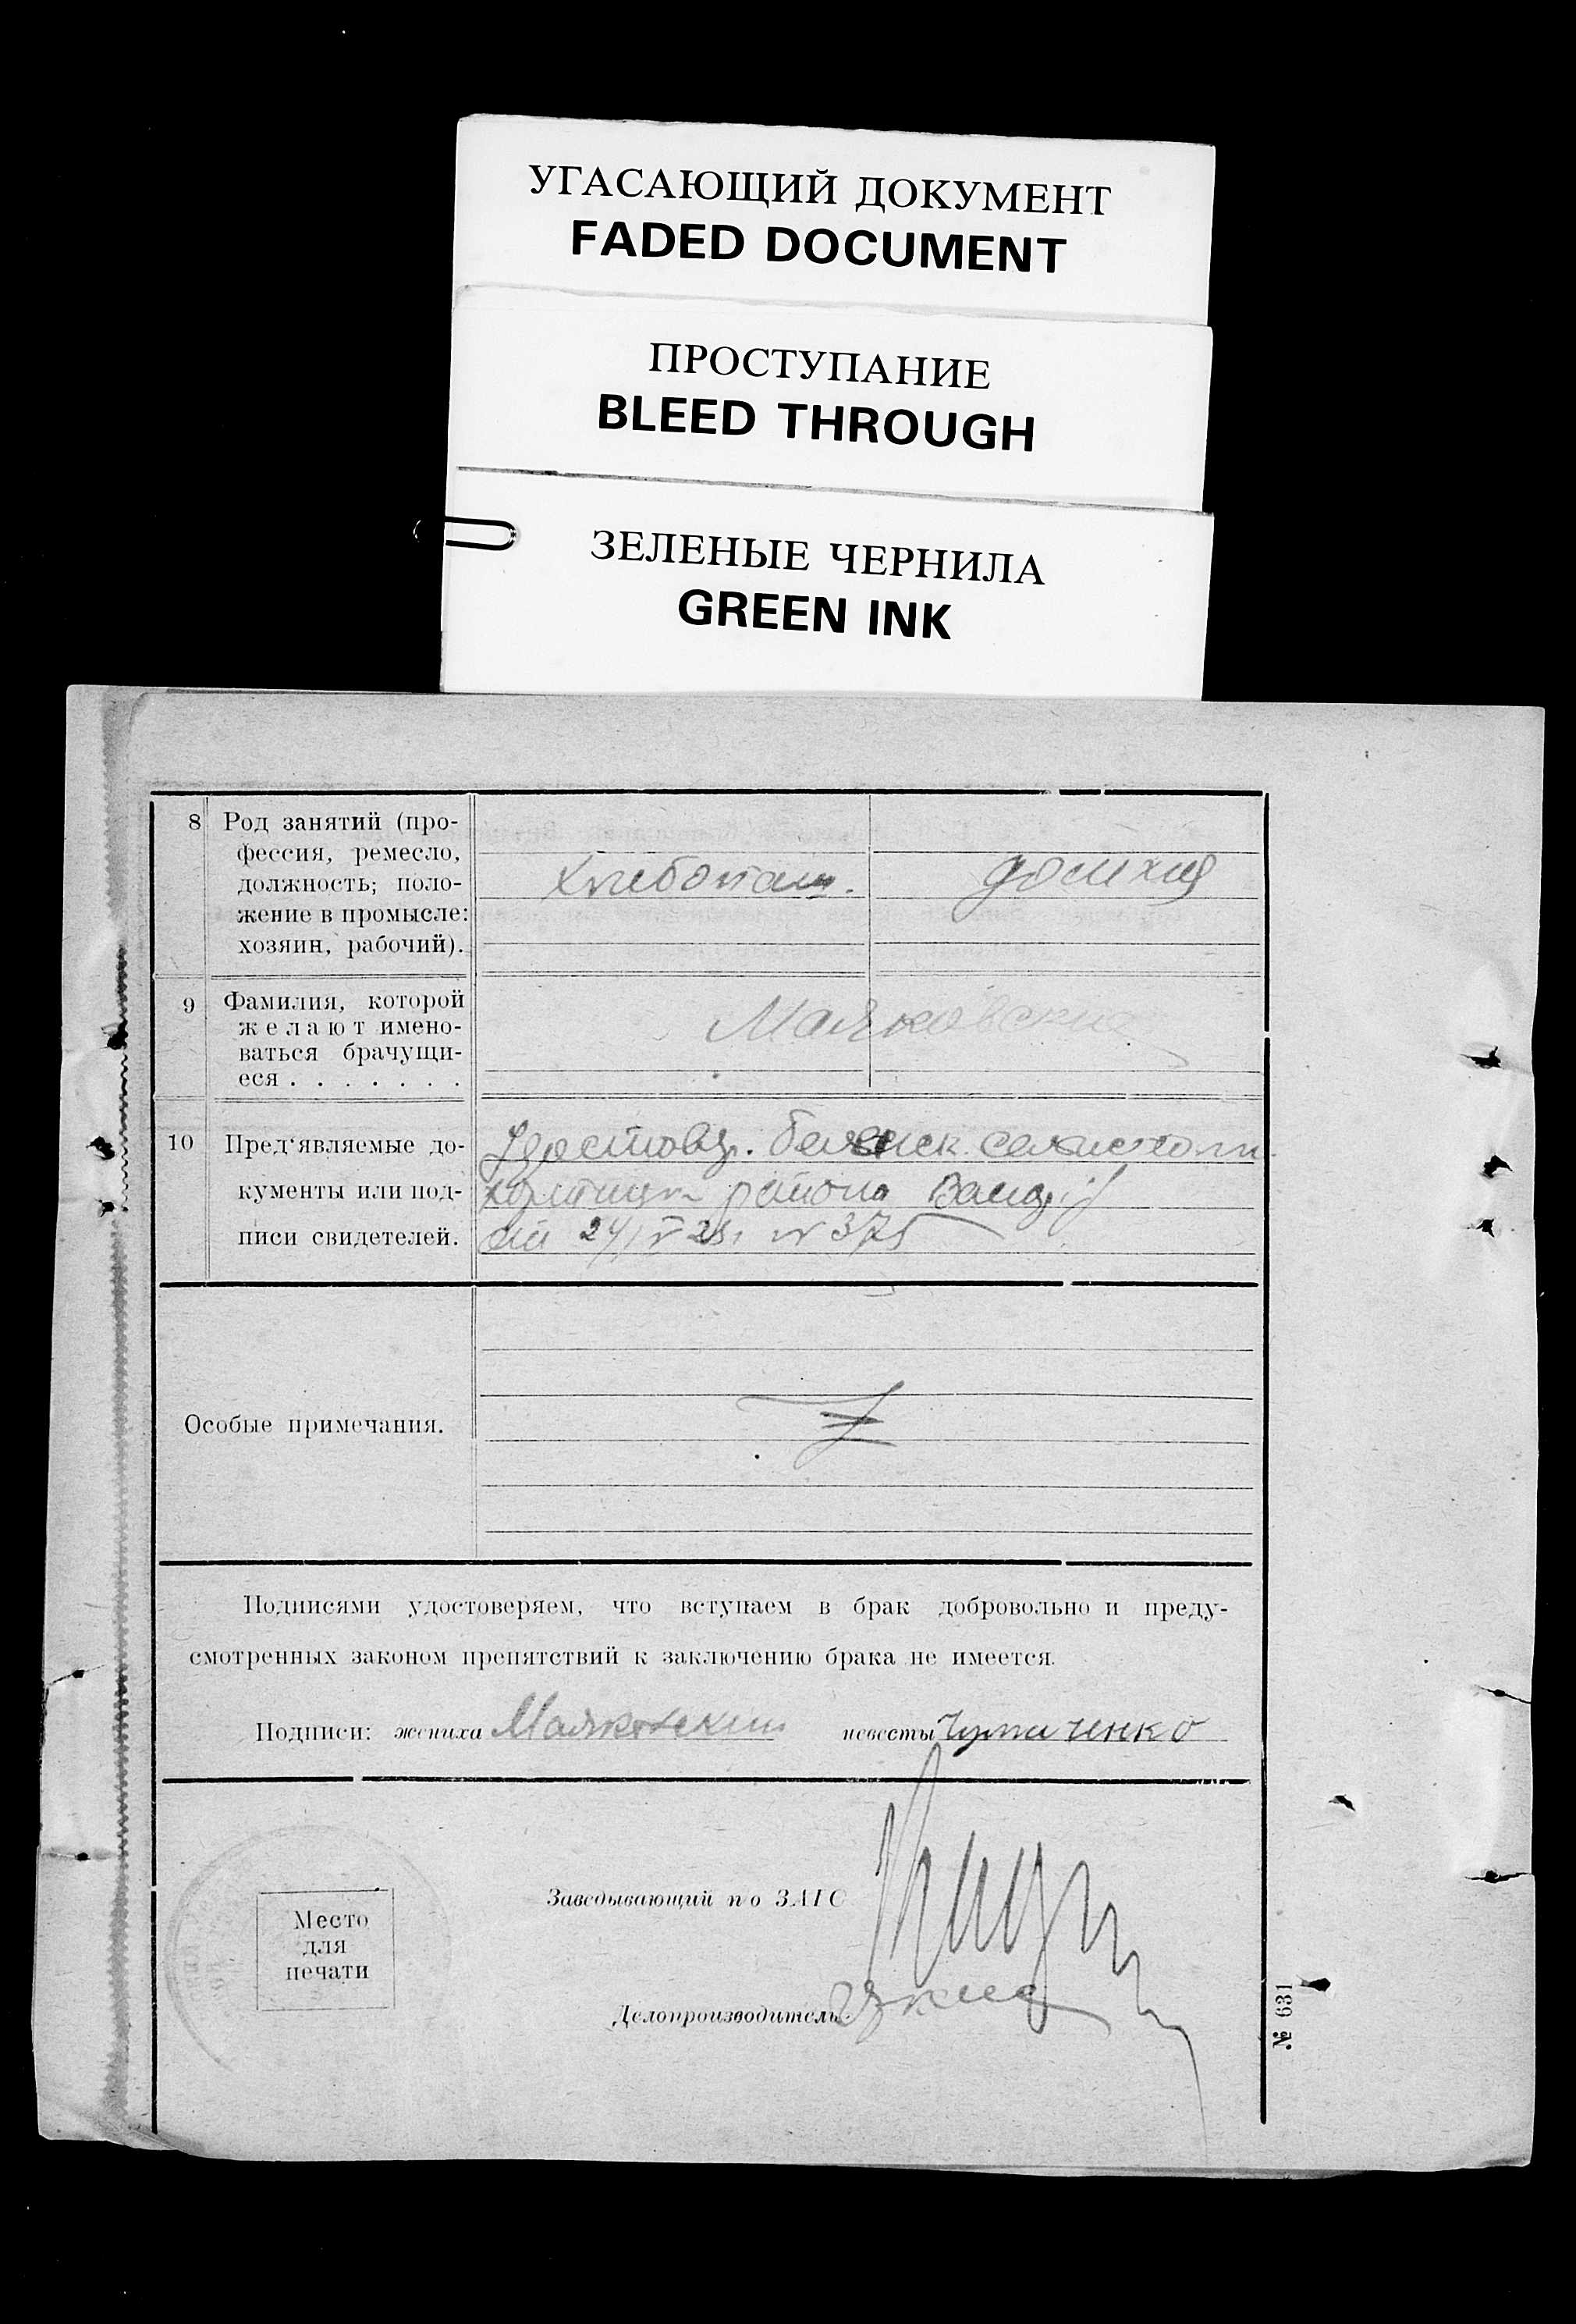 УГАСАЮЩИЙ ДОКУМЕНТ
FADED DOCUMENT
ПРОСТУПАНИЕ
BLEED THROUGH
ЗЕЛЕНЫЕ ЧЕРНИЛА
GREEN INK
8 Род занятий (про-
фессия, ремесло,
должность; поло-
жение в промысле:
хозяин, рабочий).
хлебопаш. домхоз
9 Фамилия, которой
желают имено-
ваться брачущи-
еся . . . . . . .
Маяковский
10 Пред'являемые до-
кументы или под-
писи свидетелей.
Удостовер.
района
от 24/V 23. № 375
Особые примечания.
Подписями удостоверяем, что вступаем в брак добровольно и преду-
смотренных законом препятствий к заключению брака не имеется.
Подписи: жениха Маяковский невесты
Заведывающий по ЗАГС
Место
для
печати
Делопроизводитель
№ 631